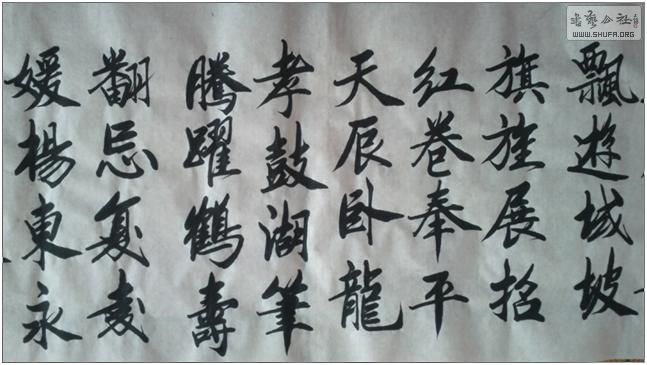 飄遊域坡
旗旌展招
紅卷奉平
天辰卧龍
孝鼓湖筆
騰躍鶴壽
翻忌夏麦
媛楊東永
書藝公社
WWW.SHUFA.ORG